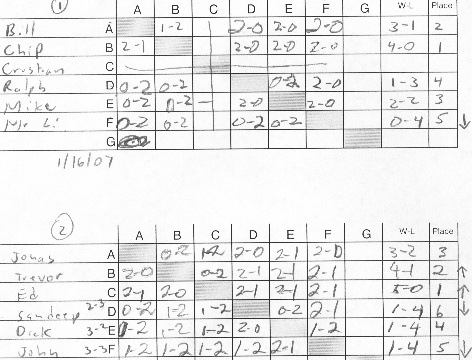 1
A B C D E F G W-L Place
Bill A 1-2 2-0 2-0 2-0 3-1 2
Chip B 2-1 2-0 2-0 2-0 4-0 1
C
Ralph D 0-2 0-2 0-2 2-0 1-3 4
Mike E 0-2 0-2 — 2-0 2-0 2-2 3
Mr Li F 0-2 0-2 0-2 0-2 0-4 5 ↓
G
1/16/07
2
A B C D E F G W-L Place
Jonas A 0-2 1-2 2-0 2-1 2-0 3-2 3
Trevor B 2-0 0-2 2-1 2-1 2-1 4-1 2 ↑
Ed C 2-1 2-0 2-1 2-1 2-1 5-0 1 ↑
Sandeep 2-3 D 0-2 1-2 1-2 0-2 2-1 1-4 6 ↓
Dick 3-2 E 1-2 1-2 1-2 2-0 1-2 1-4 4
John 3-3 F 1-2 1-2 1-2 1-2 2-1 1-4 5 ↓